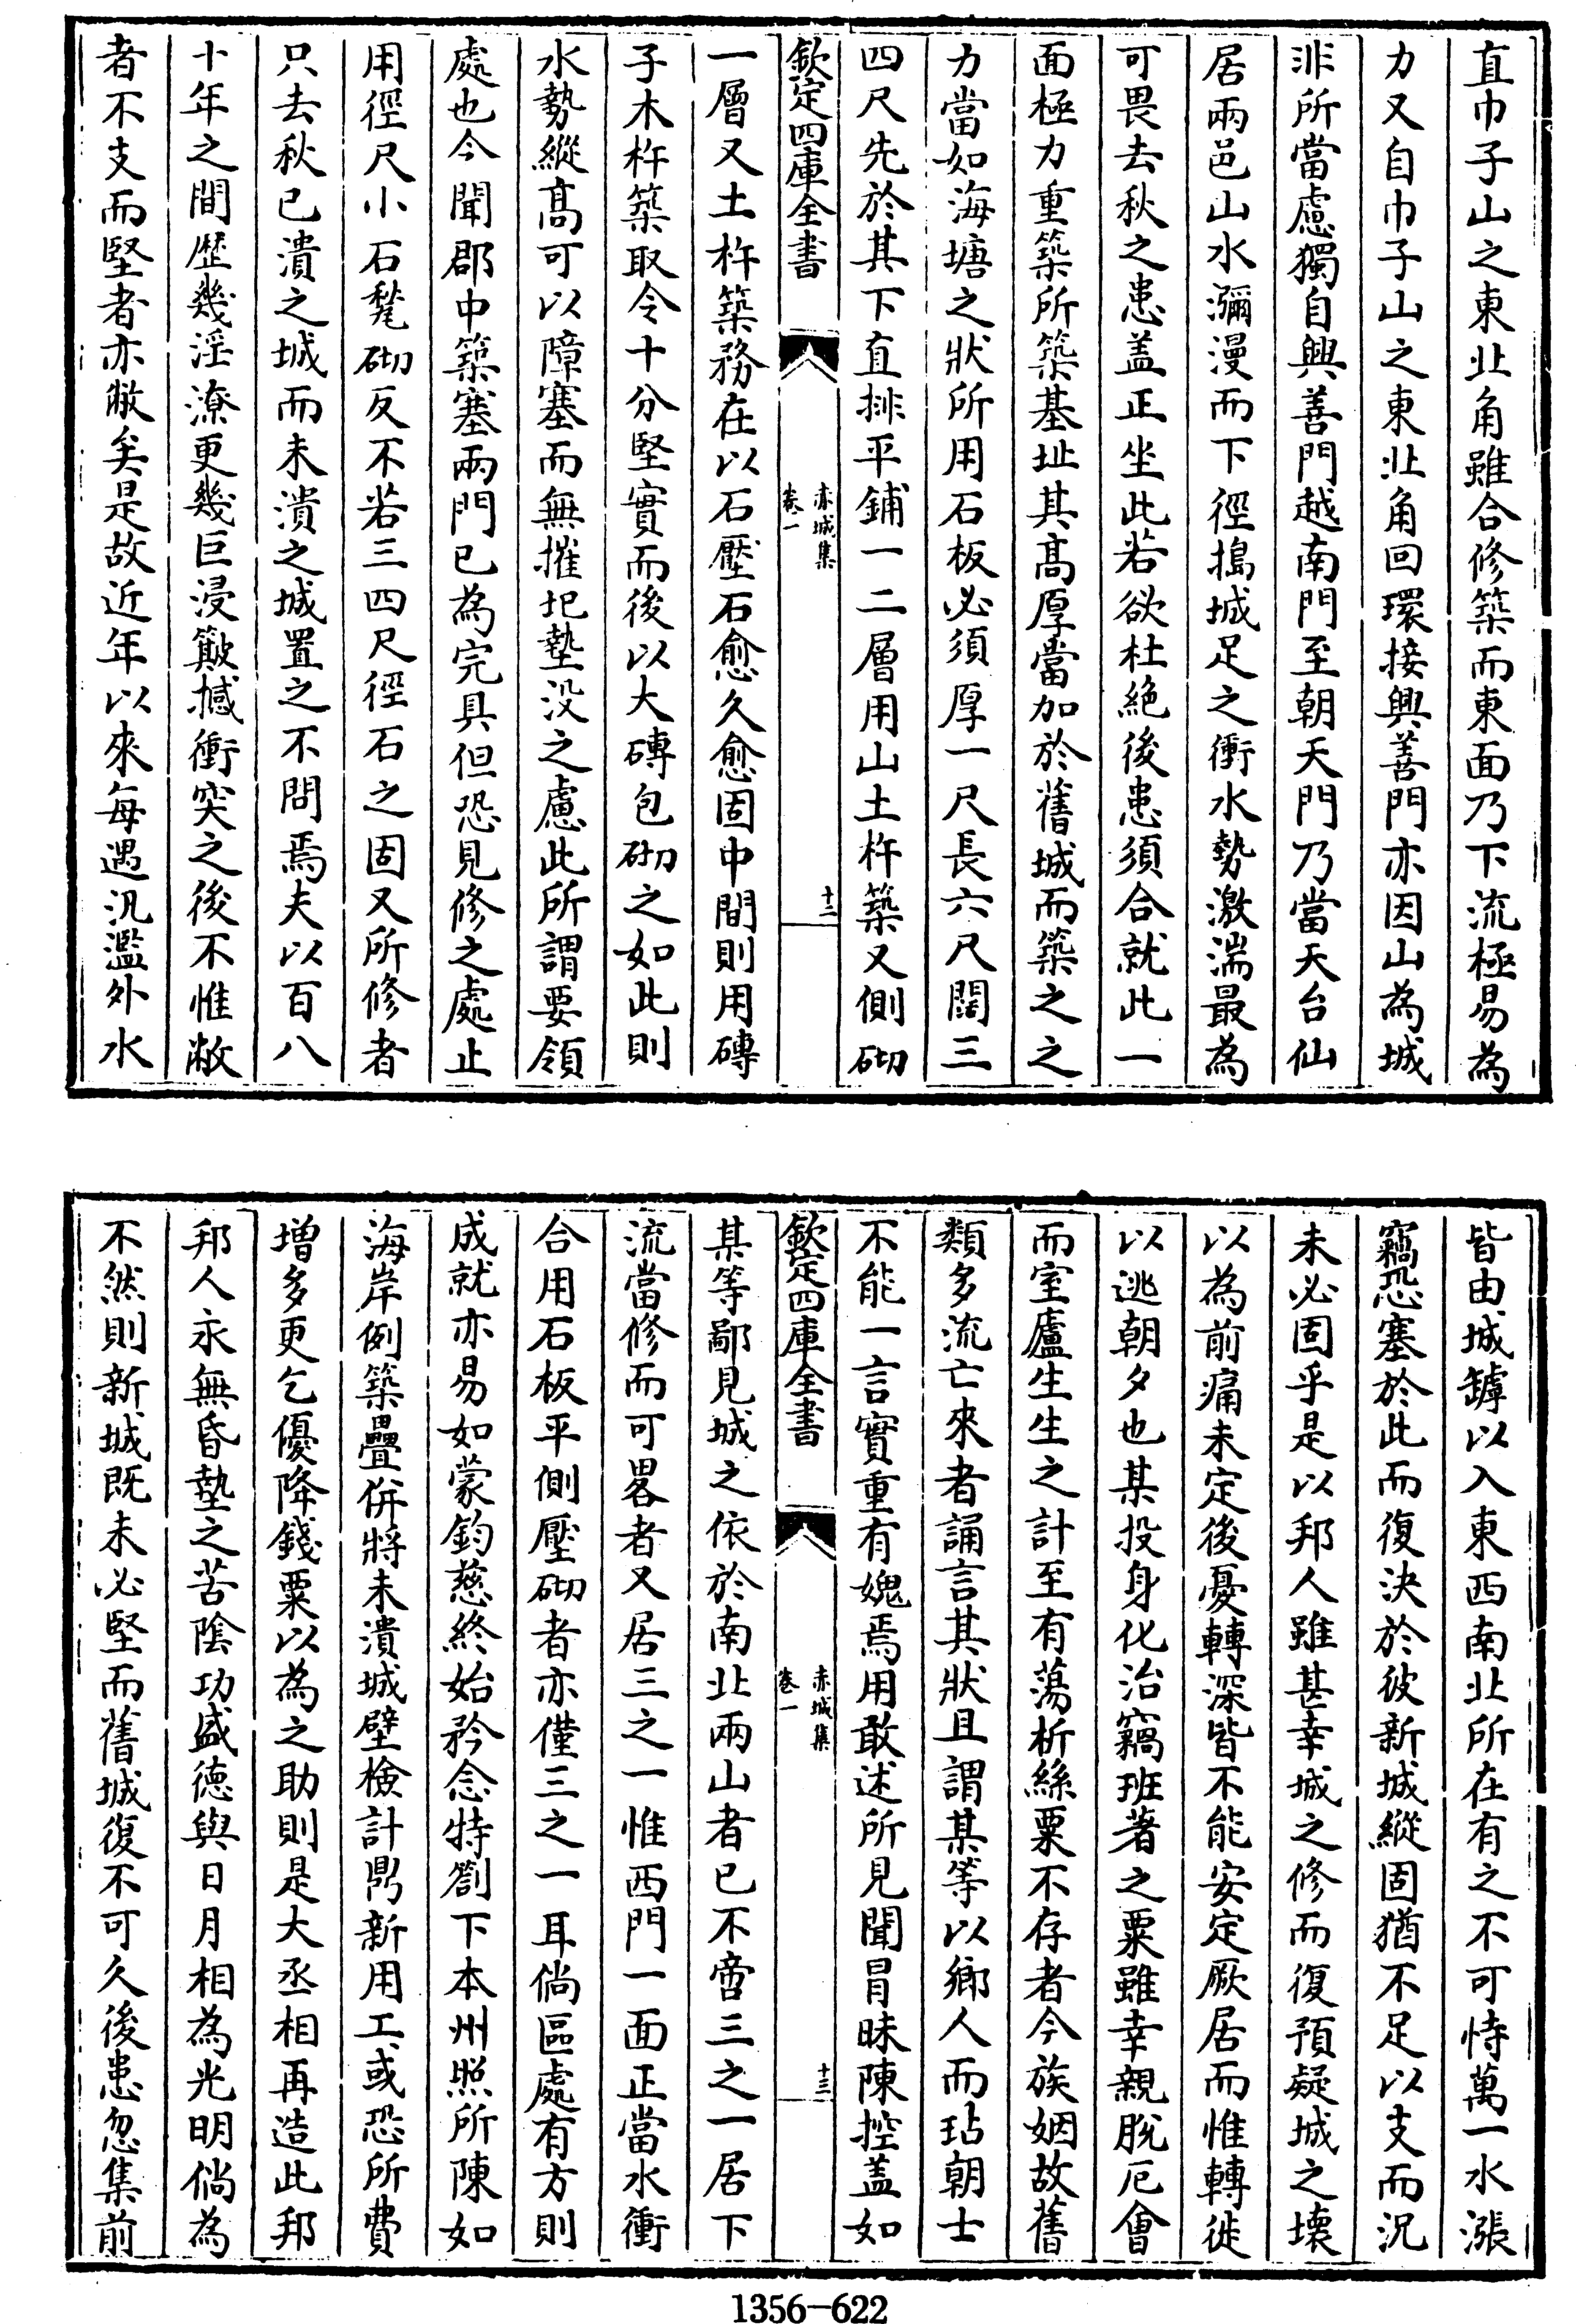 直巾子山之東北角雖合修築而東面乃下流極易為
力又自巾子山之東北角回環接興善門亦因山為城
非所當慮獨自興善門越南門至朝天門乃當天台仙
居兩邑山水瀰漫而下徑搗城足之衝水勢激湍最為
可畏去秋之患盖正坐此若欲杜絶後患須合就此一
面極力重築所築基址其髙厚當加於舊城而築之之
力當如海塘之狀所用石板必須厚一尺長六尺闊三
四尺先於其下直排平鋪一二層用山土杵築又側砌
欽定四庫全書
赤城集
卷一
十二
一層又土杵築務在以石壓石愈久愈固中間則用磚
子木杵築取令十分堅實而後以大磚包砌之如此則
水勢縱髙可以障塞而無摧圯墊没之慮此所謂要領
處也今聞郡中築塞兩門已為完具但恐見修之處止
用徑尺小石甃砌反不若三四尺徑石之固又所修者
只去秋已潰之城而未潰之城置之不問焉夫以百八
十年之間歴幾淫潦更幾巨浸簸撼衝突之後不惟敝
者不支而堅者亦敝矣是故近年以來每遇汎濫外水
皆由城罅以入東西南北所在有之不可恃萬一水漲
竊恐塞於此而復決於彼新城縱固猶不足以支而況
未必固乎是以邦人雖甚幸城之修而復預疑城之壊
以為前痛未定後憂轉深皆不能安定厥居而惟轉徙
以逃朝夕也某投身化治竊班著之粟雖幸親脫厄會
而室廬生生之計至有蕩析絲粟不存者今族姻故舊
類多流亡來者誦言其狀且謂某等以鄉人而玷朝士
不能一言實重有媿焉用敢述所見聞冒昧陳控盖如
欽定四庫全書
赤城集
卷一
十三
某等鄙見城之依於南北兩山者已不啻三之一居下
流當修而可畧者又居三之一惟西門一面正當水衝
合用石板平側壓砌者亦僅三之一耳倘區處有方則
成就亦易如蒙鈞慈終始矜念特劄下本州照所陳如
海岸例築疊併將未潰城壁檢計鼎新用工或恐所費
増多更乞優降錢粟以為之助則是大丞相再造此邦
邦人永無昏墊之苦陰功盛德與日月相為光明倘為
不然則新城既未必堅而舊城復不可久後患忽集前
1356-622